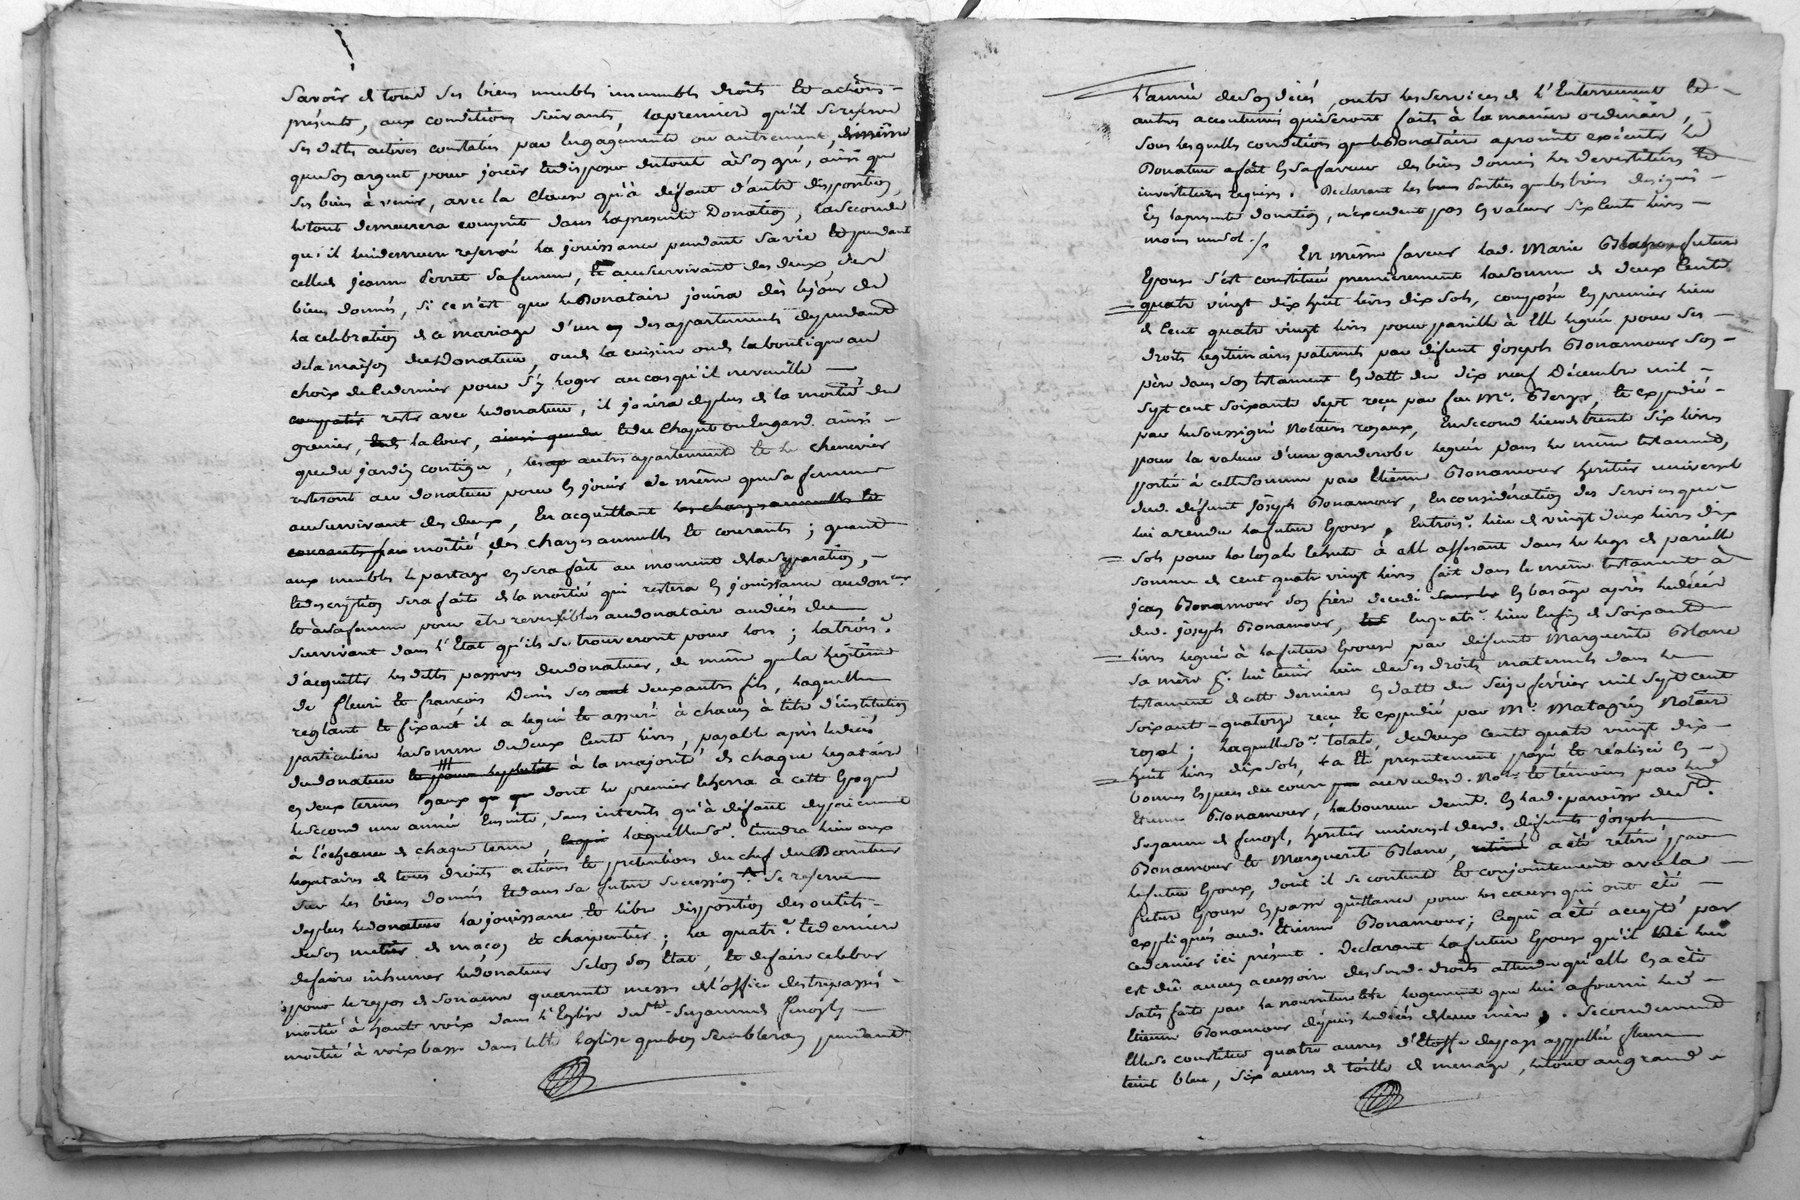 Savoir de tous ses biens meubles immeubles droits et actions
présents, aux conditions suivants, la premiere qu'il se reserve
ses dettes actives constatées par engagements ou autrement, de même
que son argent pour jouir et disposer du tout à son gré, ainsi que
ses biens à venir, avec la clause qu'à défaut d'autre disposition,
le tout demeurera compris dans la presente Donation, la seconde
qu'il lui demeure reservé la jouissance pendant sa vie et pendant
celle de jeanne Perret sa femme, et au survivant des deux des
biens donnés, si ce n'est que le Donataire jouira dès le jour de
la celebration de ce mariage d'un des appartements dependant
de la maison du Donateur, ou de la cuisine ou de la boutique au
choix de ce dernier pour s'y loger au cas qu'il ne veuille
rester avec le donateur, il jouira de plus de la moitié du
grenier, la Cour, et du Chapit ou engard ainsi
que du jardin contigu, les autres appartements et le chenevier
resteront au donateur pour en jouir de même que sa femme
au survivant des deux, En acquittant les charges annuelles et
courants par moitié, des charges annuelles et courants ; quand
aux meubles le partage en sera fait au moment de la separation,
et description sera faite de la moitié qui restera en jouissance au don.eur
et à sa femme pour etre reversibles au donataire au décès du
survivant dans l'Etat qu'ils se trouveront pour lors ; la trois.e
d'acquitter les dettes passives du donateur, de même que la légitime
de fleuri et françois Denis ses deux autres fils, laquelle
reglant et fixant il a legué et assuré à chacun à titre d'institution
particuliere la somme de deux Cents livres, payable après le décès
du donateur à la majorité de chaque legataire
en deux termes égaux dont le premier echerra à cette Epoque
le second une année Ensuite, sans interets qu'à défaut de payement
à l'échéance de chaque terme, laquelle so.e tiendra lieu aux
legataires de tous droits actions et pretentions du chef du Donateur
sur les biens donnés et dans sa future succession. Se reserve
de plus le donateur la jouissance et libre disposition des outils
de son metier de maçon et charpentier ; la quatr.e et derniere
de faire inhumer le donateur selon son Etat, et de faire celebrer
pour le repos de son ame quarante messes et l'office des trepassés
moitié à haute voix dans l'Eglise de S.te Suzanne de
moitié à voix basse dans telle Eglise que bon semblera, pendant
l'année de son décès, outre les services de l'Enterrement et
autres accoutumés qui seront faits à la maniere ordinaire,
Sous lesquelles conditions que le Donataire a promis exécuter le
Donateur a fait en sa faveur des biens donnés les devestitures et
investitures requises. Declarant les Parties que les biens designés
En la presente donation, n'excedent pas en valeur six Cents livres
moins un sol ./.
En même faveur lad. Marie future
Epouse s'est constituée premierement la somme de deux Cents
quatre vingt dix huit livres dix sols, composée En premier lieu
de Cent quatre vingt livres pour pareille à Elle leguée pour ses
droits legitimaires paternels par défunt Joseph Bonamour son
père dans son testament en datte du dix neuf Décembre mil
sept cent soixante sept reçu par feu M.e et expedié
par le soussigné Notaires royaux, En second lieu de trente six livres
pour la valeur d'une garderobe leguée dans le même testament,
portée à cette somme par Etienne Bonamour heritier universel
dud. défunt Joseph Bonamour, En considération des services que
lui a rendu la future Epouse, En trois.e lieu de vingt deux livres dix
sols pour la losale échute à elle afferant dans le legs de pareille
somme de cent quatre vingt livres fait dans le même testament à
jean Bonamour son frère decedé en bas âge après le décès
dud. Joseph Bonamour, En quatr.e lieu Enfin de soixante
livres leguée à la future Epouse par défunte Marguerite Blanc
sa mère p.r lui tenir lieu de ses droits maternels dans le
testament de cette derniere en datte du seize fevrier mil sept cent
soixante-quatorze reçu et expedié par M.e Matagrin Notaire
royal ; laquelle so.e totale de deux cents quatre vingt dix
huit livres dix sols, a été presentement payée et réalisée en
bonnes Especes du cours au vu desd. Not.re et témoins par led
Etienne Bonamour, laboureur demt. en lad. paroisse de S.te
Suzanne de, heritier universel desd. défunts Joseph
Bonamour et Marguerite Blanc, a été retiré par
le futur Epoux, dont il se contente et conjointement avec la
future Epouse En passe quittance pour les causes qui ont été
expliquées aud. Etienne Bonamour ; Ce qui a été accepté par
ce dernier ici présent. Declarant la future Epouse qu'il ne lui
est dû aucun accessoire desd. droits attendu qu'elle En a été
satisfaite par la nourriture et le logement que lui a fourni led
Etienne Bonamour depuis le décès de leur mère. Secondement
Elle se constitue quatre aunes d'étoffe de pays appellée
teint bleu, six aunes de toille de menage, le tout au grand